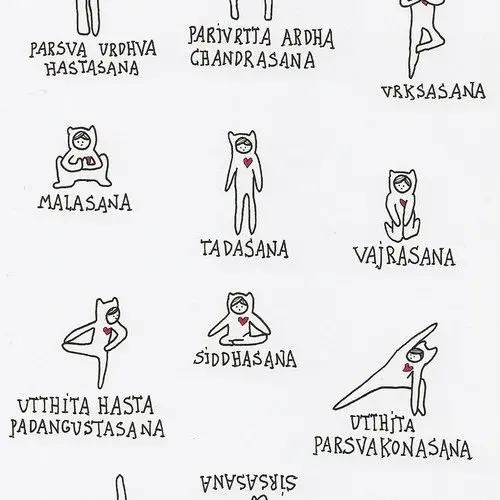 PARSVA URDHVA
HASTASANA
PARIVRTTA ARDHA
CHANDRASANA
VRKSASANA
MALASANA
TADASANA
VAJRASANA
SIDDHASANA
UTTHITA HASTA
PADANGUSTASANA
UTTHITA
PARSVAKONASANA
SIRSASANA